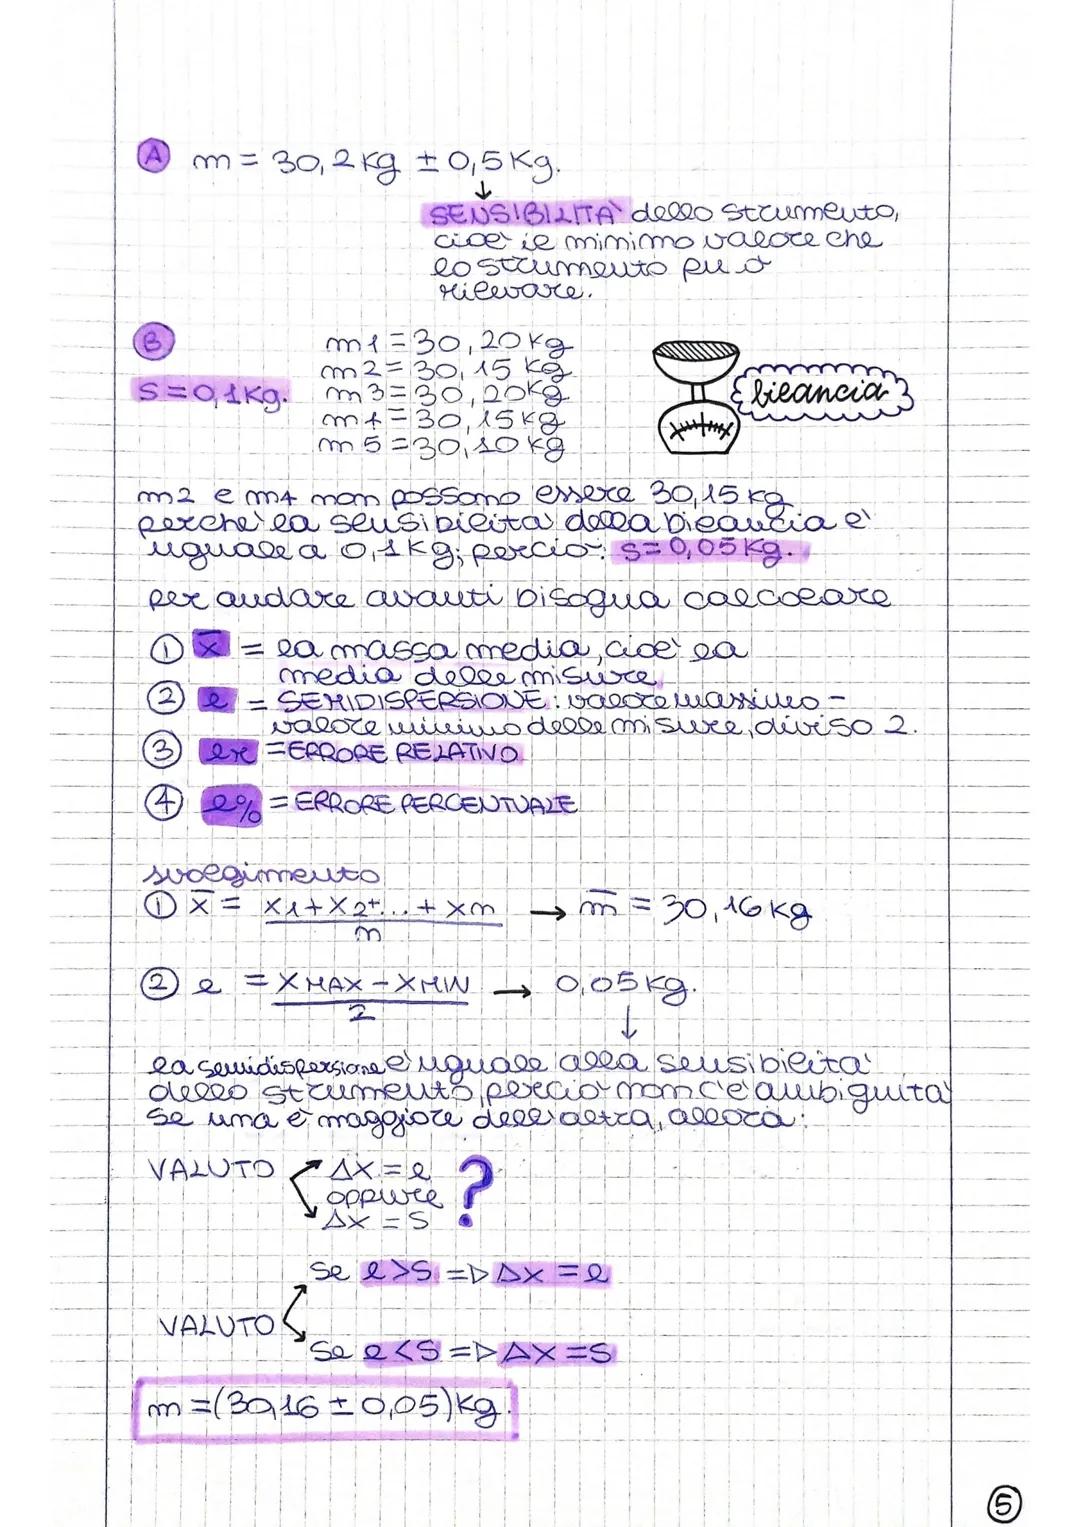 A m = 30,2 kg ± 0,5 Kg.
↓
SENSIBILITA' dello strumento,
cioè il minimo valore che
lo strumento può
rilevare.
B
S = 0,1 Kg.
m1 = 30,20 kg
m2 = 30,15 kg
m3 = 30,20 kg
m4 = 30,15 kg
m5 = 30,10 kg
bilancia
m2 e m4 non possono essere 30,15 kg
perchè la sensibilità della bilancia è
uguale a 0,1 kg; perciò: S = 0,05 Kg.
per andare avanti bisogna calcolare
① x̅ = la massa media, cioè la
media delle misure
② e = SEMIDISPERSIONE: valore massimo -
valore minimo delle misure, diviso 2.
③ er = ERRORE RELATIVO
④ e% = ERRORE PERCENTUALE
svolgimento
① x̅ = x1 + x2 + ... + xn / n → m̅ = 30,16 kg
② e = X MAX - X MIN / 2 → 0,05 kg.
↓
la semidispersione è uguale alla sensibilità
dello strumento, perciò non c'è ambiguità
se una è maggiore dell'altra, allora:
VALUTO Δx = e
oppure
Δx = S
?
VALUTO
Se e > S =▷ Δx = e
Se e < S =▷ Δx = S
m = (30,16 ± 0,05) kg.
5